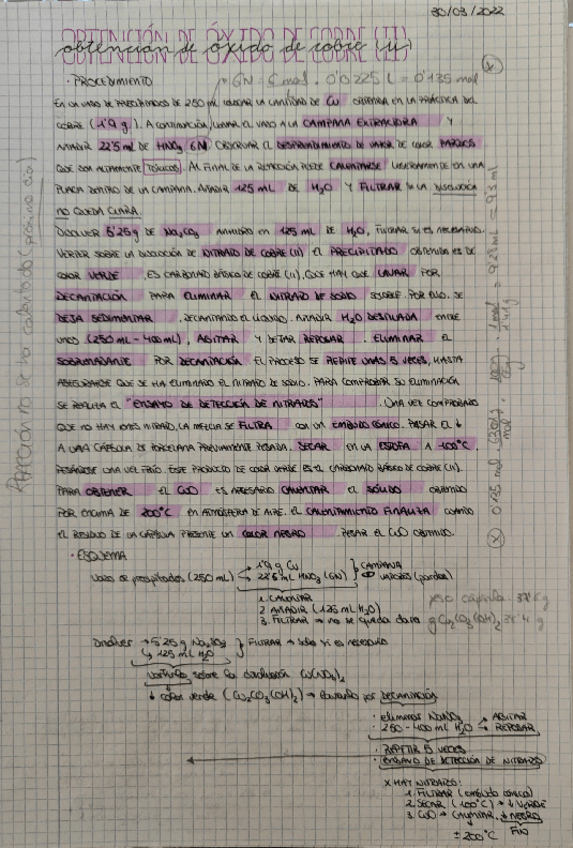 30/03/2022
OBTENCIÓN DE ÓXIDO DE COBRE (II)
obtención de óxido de cobre (II)
· PROCEDIMIENTO
6N = 6 mol · 0'0225L = 0'135 mol
EN UN VASO DE PRECIPITADOS DE 250 mL COLOCAR LA CANTIDAD DE Cu OBTENIDA EN LA PRÁCTICA DEL
COBRE (1'9 g). A CONTINUACIÓN, LLEVAR EL VASO A LA CAMPANA EXTRACTORA Y
AÑADIR 22'5 mL DE HNO3 6N. OBSERVAR EL DESPRENDIMIENTO DE VAPOR DE COLOR PARDOS
QUE SON ALTAMENTE TÓXICOS. AL FINAL DE LA REACCIÓN PUEDE CALENTARSE LIGERAMENTE EN UNA
PLACA DENTRO DE LA CAMPANA. AÑADIR 125 mL DE H2O Y FILTRAR SI LA DISOLUCIÓN
NO QUEDA CLARA.
DISOLVER 5'25 g DE Na2CO3 ANHIDRO EN 125 mL DE H2O, FILTRAR SI ES NECESARIO.
VERTER SOBRE LA DISOLUCIÓN DE NITRATO DE COBRE (II) EL PRECIPITADO OBTENIDO ES DE
COLOR VERDE, ES CARBONATO BÁSICO DE COBRE (II), QUE HAY QUE LAVAR POR
DECANTACIÓN PARA ELIMINAR EL NITRATO DE SODIO SOLUBLE. POR ELLO, SE
DEJA SEDIMENTAR, DECANTANDO EL LÍQUIDO. AÑADIR H2O DESTILADA ENTRE
UNOS (250 mL - 400 mL), AGITAR Y DEJAR REPOSAR. ELIMINAR EL
SOBRENADANTE POR DECANTACIÓN. EL PROCESO SE REPITE UNAS 5 VECES, HASTA
ASEGURARSE QUE SE HA ELIMINADO EL NITRATO DE SODIO. PARA COMPROBAR SU ELIMINACIÓN
SE REALIZA EL "ENSAYO DE DETECCIÓN DE NITRATOS". UNA VEZ COMPROBADO
QUE NO HAY IONES NITRATO, LA MEZCLA SE FILTRA CON UN EMBUDO CÓNICO. PASAR EL ↓
A UNA CÁPSULA DE PORCELANA PREVIAMENTE PESADA. SECAR EN LA ESTUFA A 100°C,
PESÁNDOSE UNA VEZ FRÍO. ESTE PRODUCTO DE COLOR VERDE ES EL CARBONATO BÁSICO DE COBRE (II).
PARA OBTENER EL CuO ES NECESARIO CALENTAR EL SÓLIDO OBTENIDO
POR ENCIMA DE 200°C EN ATMÓSFERA DE AIRE. EL CALENTAMIENTO FINALIZA CUANDO
EL RESIDUO DE LA CÁPSULA PRESENTE UN COLOR NEGRO. PESAR EL CuO OBTENIDO.
· ESQUEMA
Vaso de precipitados (250 mL) → 1'9 g Cu
→ 22'5 mL HNO3 (6N)
CAMPANA
vapores (pardos)
1. CALENTAR
2. AÑADIR (125 mL H2O)
3. FILTRAR → no se queda clara
peso cápsula:
g Cu2CO3(OH)2
Disolver → 5'25 g Na2CO3
→ 125 mL H2O
FILTRAR → solo si es necesario
verterlo sobre la disolución Cu(NO3)2
↓ color verde (Cu2CO3(OH)2) → lavarlo por DECANTACIÓN
· eliminar NaNO3
· 250 - 400 mL H2O → AGITAR
→ REPOSAR
· REPETIR 5 VECES
· ENSAYO DE DETECCIÓN DE NITRATOS
X HAY NITRATO:
1. FILTRAR (embudo cónico)
2. SECAR (100°C) → ↓ VERDE
3. CuO → CALENTAR, ↓ NEGRO
± 200°C
FRÍO